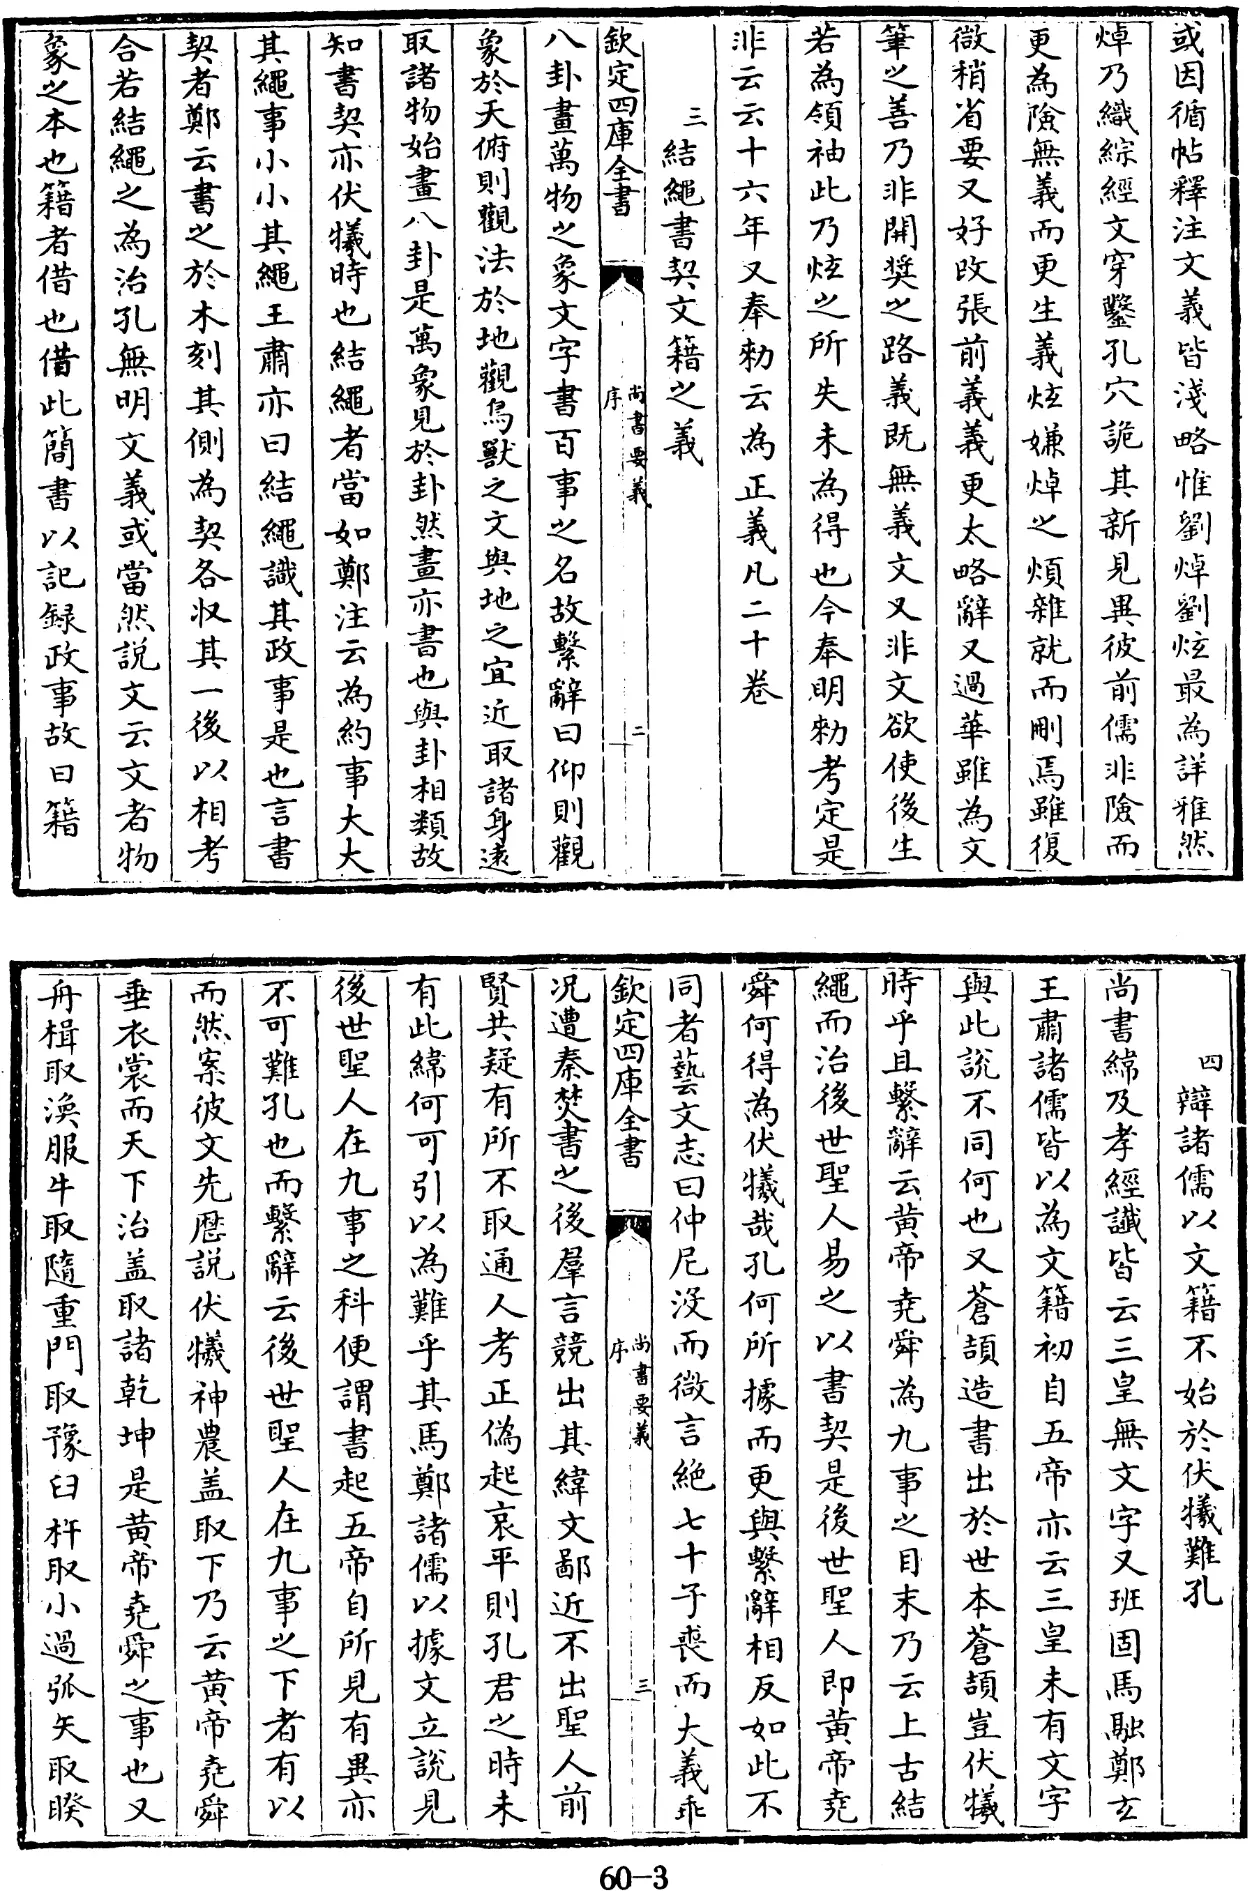 或因循帖釋注文義皆淺略惟劉焯劉炫最為詳雅然
焯乃織綜經文穿鑿孔穴詭其新見異彼前儒非險而
更為險無義而更生義炫嫌焯之煩雜就而刪焉雖復
微稍省要又好改張前義義更太略辭又過華雖為文
筆之善乃非開奬之路義既無義文又非文欲使後生
若為領袖此乃炫之所失未為得也今奉明勑考定是
非云云十六年又奉勑云為正義凡二十卷
三結繩書契文籍之義
欽定四庫全書
尚書要義
序
二
八卦畫萬物之象文字書百事之名故繫辭曰仰則觀
象於天俯則觀法於地觀鳥獸之文與地之宜近取諸身遠
取諸物始畫八卦是萬象見於卦然畫亦書也與卦相類故
知書契亦伏犧時也結繩者當如鄭注云為約事大大
其繩事小小其繩王肅亦曰結繩識其政事是也言書
契者鄭云書之於木刻其側為契各收其一後以相考
合若結繩之為治孔無明文義或當然説文云文者物
象之本也籍者借也借此簡書以記録政事故曰籍
四辯諸儒以文籍不始於伏犧難孔
尚書緯及孝經讖皆云三皇無文字又班固馬融鄭玄
王肅諸儒皆以為文籍初自五帝亦云三皇未有文字
與此説不同何也又蒼頡造書出於世本蒼頡豈伏犧
時乎且繫辭云黄帝堯舜為九事之目末乃云上古結
繩而治後世聖人易之以書契是後世聖人即黄帝堯
舜何得為伏犧哉孔何所據而更與繫辭相反如此不
同者藝文志曰仲尼沒而微言絶七十子喪而大義乖
欽定四庫全書
尚書要義
序
三
况遭秦焚書之後羣言競出其緯文鄙近不出聖人前
賢共疑有所不取通人考正偽起哀平則孔君之時未
有此緯何可引以為難乎其馬鄭諸儒以據文立説見
後世聖人在九事之科便謂書起五帝自所見有異亦
不可難孔也而繫辭云後世聖人在九事之下者有以
而然案彼文先歴説伏犧神農盖取下乃云黄帝堯舜
垂衣裳而天下治盖取諸乾坤是黄帝堯舜之事也又
舟楫取渙服牛取隨重門取豫臼杵取小過弧矢取睽
60-3